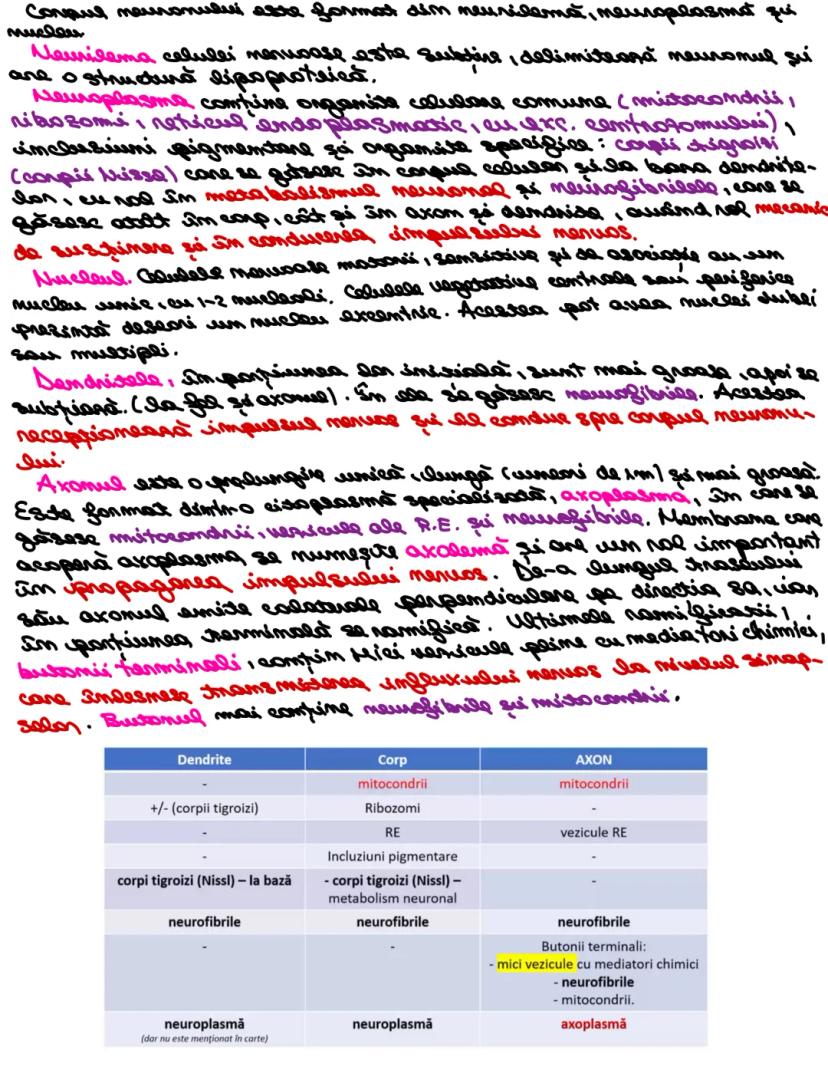 Corpul neuronului este format din neurilemă, neuroplasmă și
nucleu
Neurilema celulei nervoase este subțire, delimitează neuronul și
are o structură lipoproteică.
Neuroplasma conține organite celulare comune (mitocondrii,
ribozomi, reticul endoplasmatic, cu exc. centrozomului),
incluziuni pigmentare și organite specifice: corpii tigroizi
(corpii Nissl) care se găsesc în corpul celular și la baza dendrite-
lor, cu rol în metabolismul neuronal și neurofibrilele, care se
găsesc atât în corp, cât și în axon și dendrite, având rol mecanic
de susținere și în conducerea impulsului nervos.
Nucleul. Celulele nervoase motorii, senzitive și de asociație au un
nucleu unic, cu 1-2 nucleoli. Celulele vegetative centrale sau periferice
prezintă deseori un nucleu excentric. Acestea pot avea nuclei dubli
sau multipli.
Dendritele, în porțiunea lor inițială, sunt mai groase, apoi se
subțiază. (la fel și axonul). În ele se găsesc neurofibrile. Acestea
recepționează impulsul nervos și îl conduc spre corpul neuronu-
lui.
Axonul este o prelungire unică, lungă (uneori de 1m) și mai groasă.
Este format dintr-o citoplasmă specializată, axoplasma, în care se
găsesc mitocondrii, vezicule ale R.E. și neurofibrile. Membrana care
acoperă axoplasma se numește axolemă și are un rol important
în propagarea impulsului nervos. De-a lungul traseului
său axonul emite colaterale perpendiculare pe direcția sa, iar
în porțiunea terminală se ramifică. Ultimele ramificații,
butonii terminali, conțin mici vezicule pline cu mediatori chimici,
care înlesnesc transmiterea influxului nervos la nivelul sinap-
selor. Butonul mai conține neurofibrile și mitocondrii.
Dendrite Corp AXON
- mitocondrii mitocondrii
+/- (corpii tigroizi) Ribozomi -
- RE vezicule RE
- Incluziuni pigmentare -
corpi tigroizi (Nissl) – la bază - corpi tigroizi (Nissl) – -
metabolism neuronal
neurofibrile neurofibrile neurofibrile
- - Butonii terminali:
- mici vezicule cu mediatori chimici
- neurofibrile
- mitocondrii.
neuroplasmă neuroplasmă axoplasmă
(dar nu este menționat în carte)